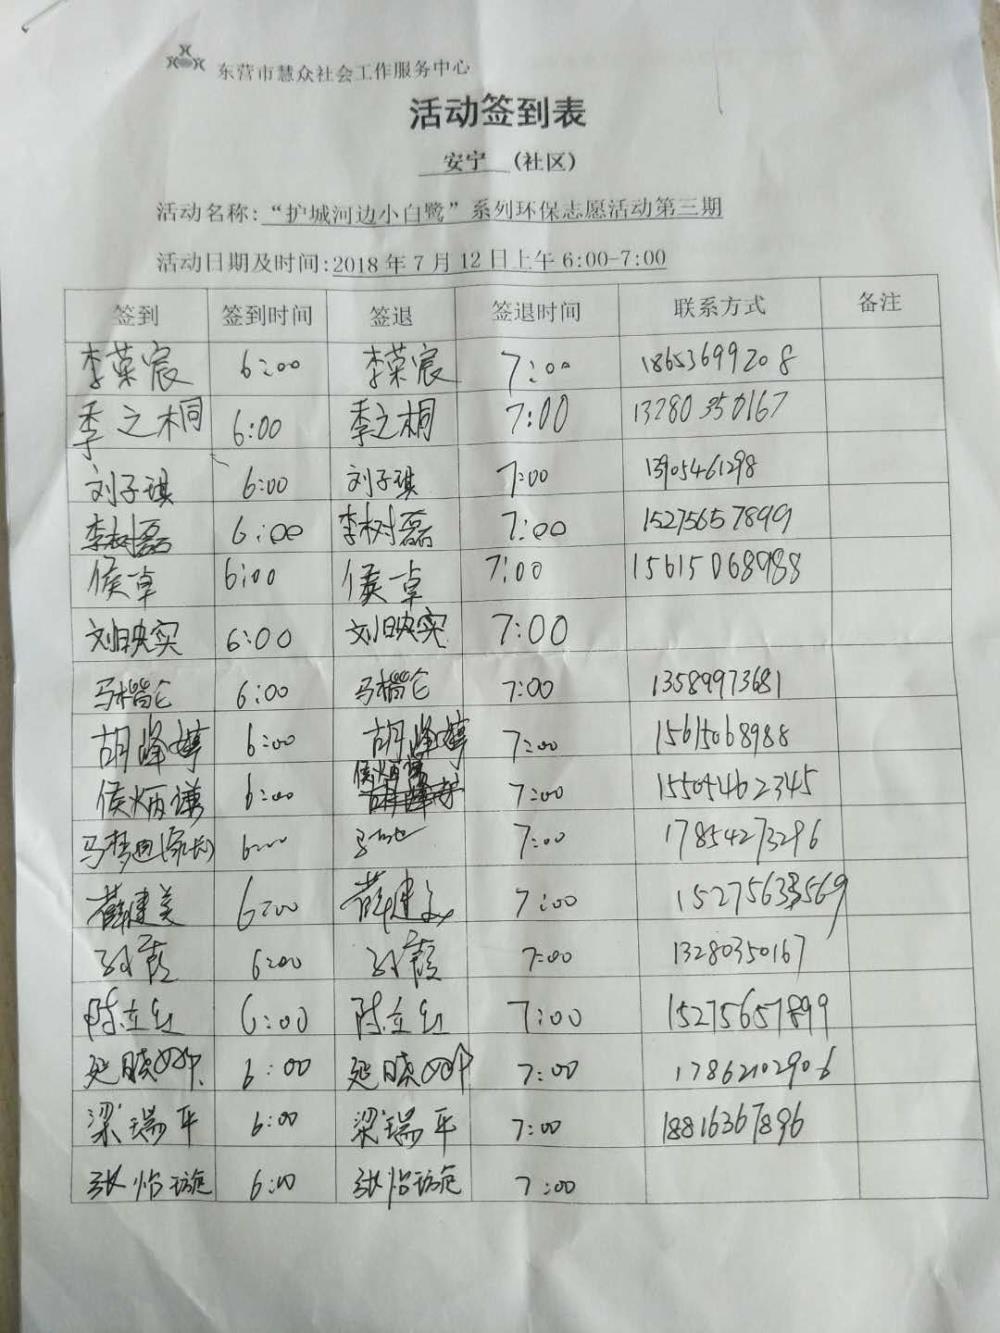 东营市慧众社会工作服务中心
活动签到表
安宁 (社区)
活动名称:“护城河边小白鹭”系列环保志愿活动第三期
活动日期及时间:2018年7月12日上午6:00-7:00
签到 签到时间 签退 签退时间 联系方式 备注
李荣宸 6:00 李荣宸 7:00 18653699208
季之桐 6:00 季之桐 7:00 13280350167
刘子琪 6:00 刘子琪 7:00 13905461298
李树磊 6:00 李树磊 7:00 15275657899
侯卓 6:00 侯卓 7:00 15615068988
刘映实 6:00 刘映实 7:00
马楷仑 6:00 马楷仑 7:00 13589973681
胡峰婷 6:00 胡峰婷 7:00 15615068988
侯炳谦 6:00 侯炳谦 7:00 15505462345
马梦迪(家长) 6:00 7:00 17854273296
薛建美 6:00 薛建美 7:00 15275633569
孙霞 6:00 孙霞 7:00 13280350167
陈立红 6:00 陈立红 7:00 15275657899
延晓 6:00 延晓 7:00 17862102906
梁瑞平 6:00 梁瑞平 7:00 18816367896
张怡旎 6:00 张怡旎 7:00